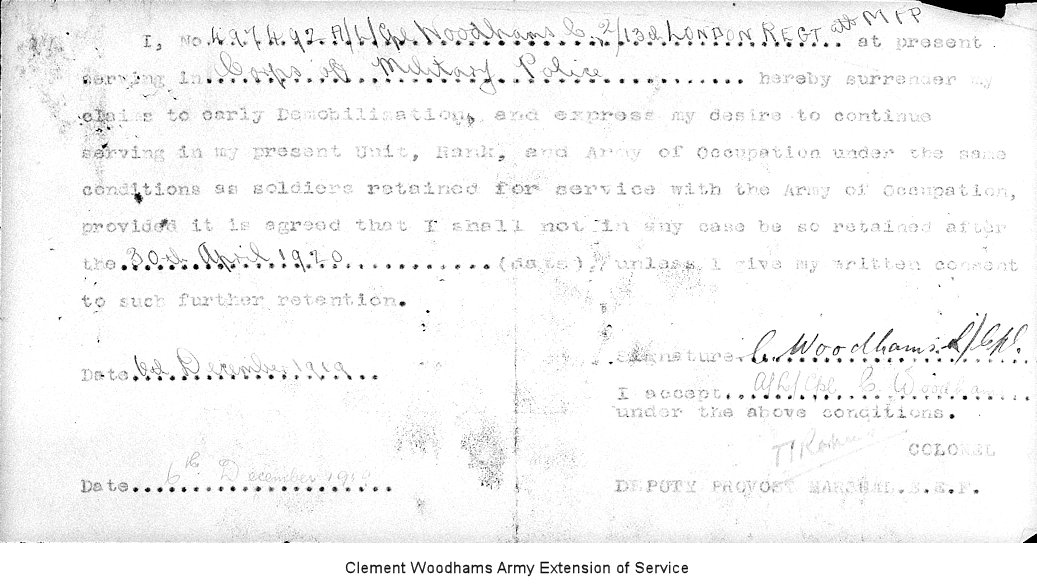 I, No. 497492 A/L/Cpl Woodhams C. 2/13d LONDON REGT att M F P at present
serving in Corps of Military Police hereby surrender my
claims to early Demobilisation, and express my desire to continue
serving in my present Unit, Rank, and Army of Occupation under the same
conditions as soldiers retained for service with the Army of Occupation,
provided it is agreed that I shall not in any case be so retained after
the 30th April 1920 (date), unless I give my written consent
to such further retention.
Signature C. Woodhams. L/Cpl.
Date 6d December 1919
I accept A/L/Cpl C. Woodhams
under the above conditions.
COLONEL
Date 6th December 1919
DEPUTY PROVOST MARSHAL. E.E.F.
Clement Woodhams Army Extension of Service